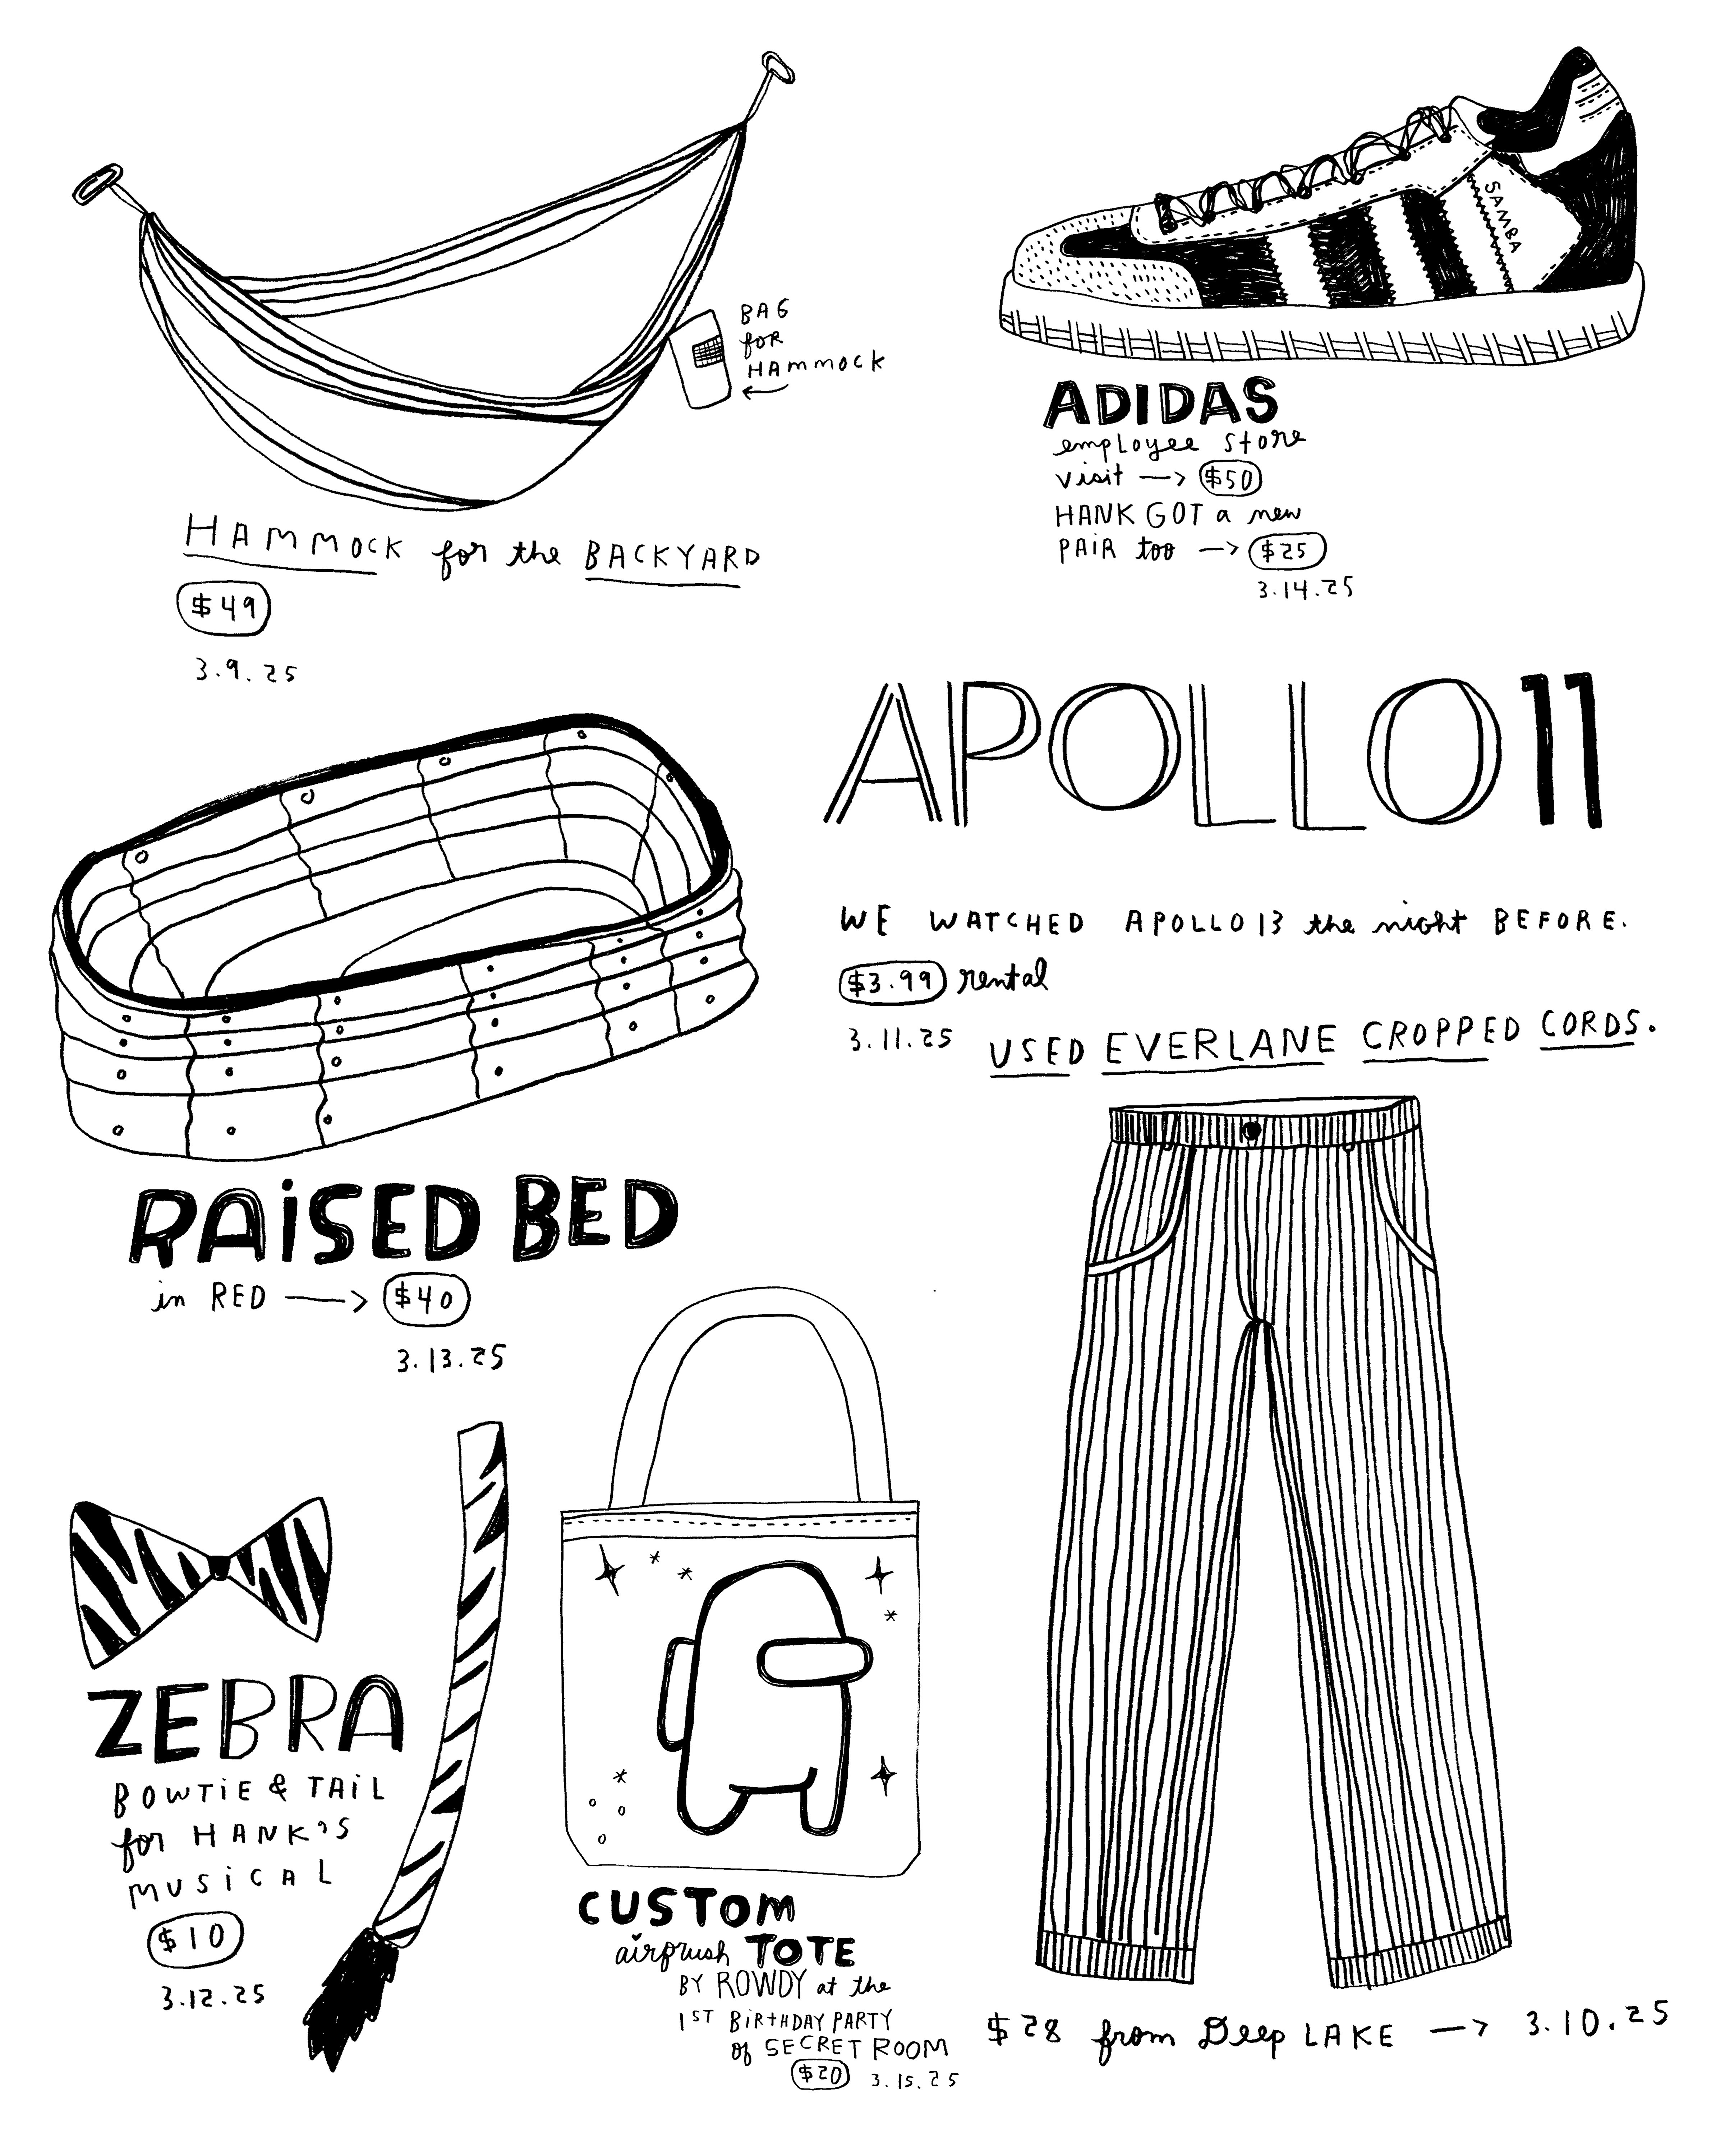 BAG
for
HAMMOCK
HAMMOCK for the BACKYARD
$49
3.9.25
SAMBA
ADIDAS
employee store
visit → $50
HANK GOT a new
PAIR too → $25
3.14.25
APOLLO 11
WE WATCHED APOLLO 13 the night BEFORE.
$3.99 rental
3.11.25
RAiSED BED
in RED → $40
3.13.25
USED EVERLANE CROPPED CORDS.
$28 from Deep LAKE → 3.10.25
ZEBRA
BOWTiE & TAiL
for HANK'S
MUSiCAL
$10
3.12.25
CUSTOM
airbrush TOTE
BY ROWDY at the
1ST BiRTHDAY PARTY
of SECRET ROOM
$20 3.15.25